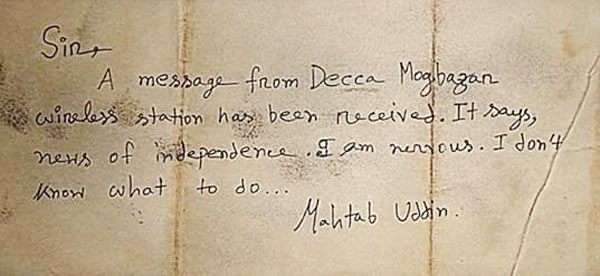 Sir,
A message from Decca Mogbazar
wireless station has been received. It says,
news of independence. I am nervous. I don't
know what to do...
Mahtab Uddin.